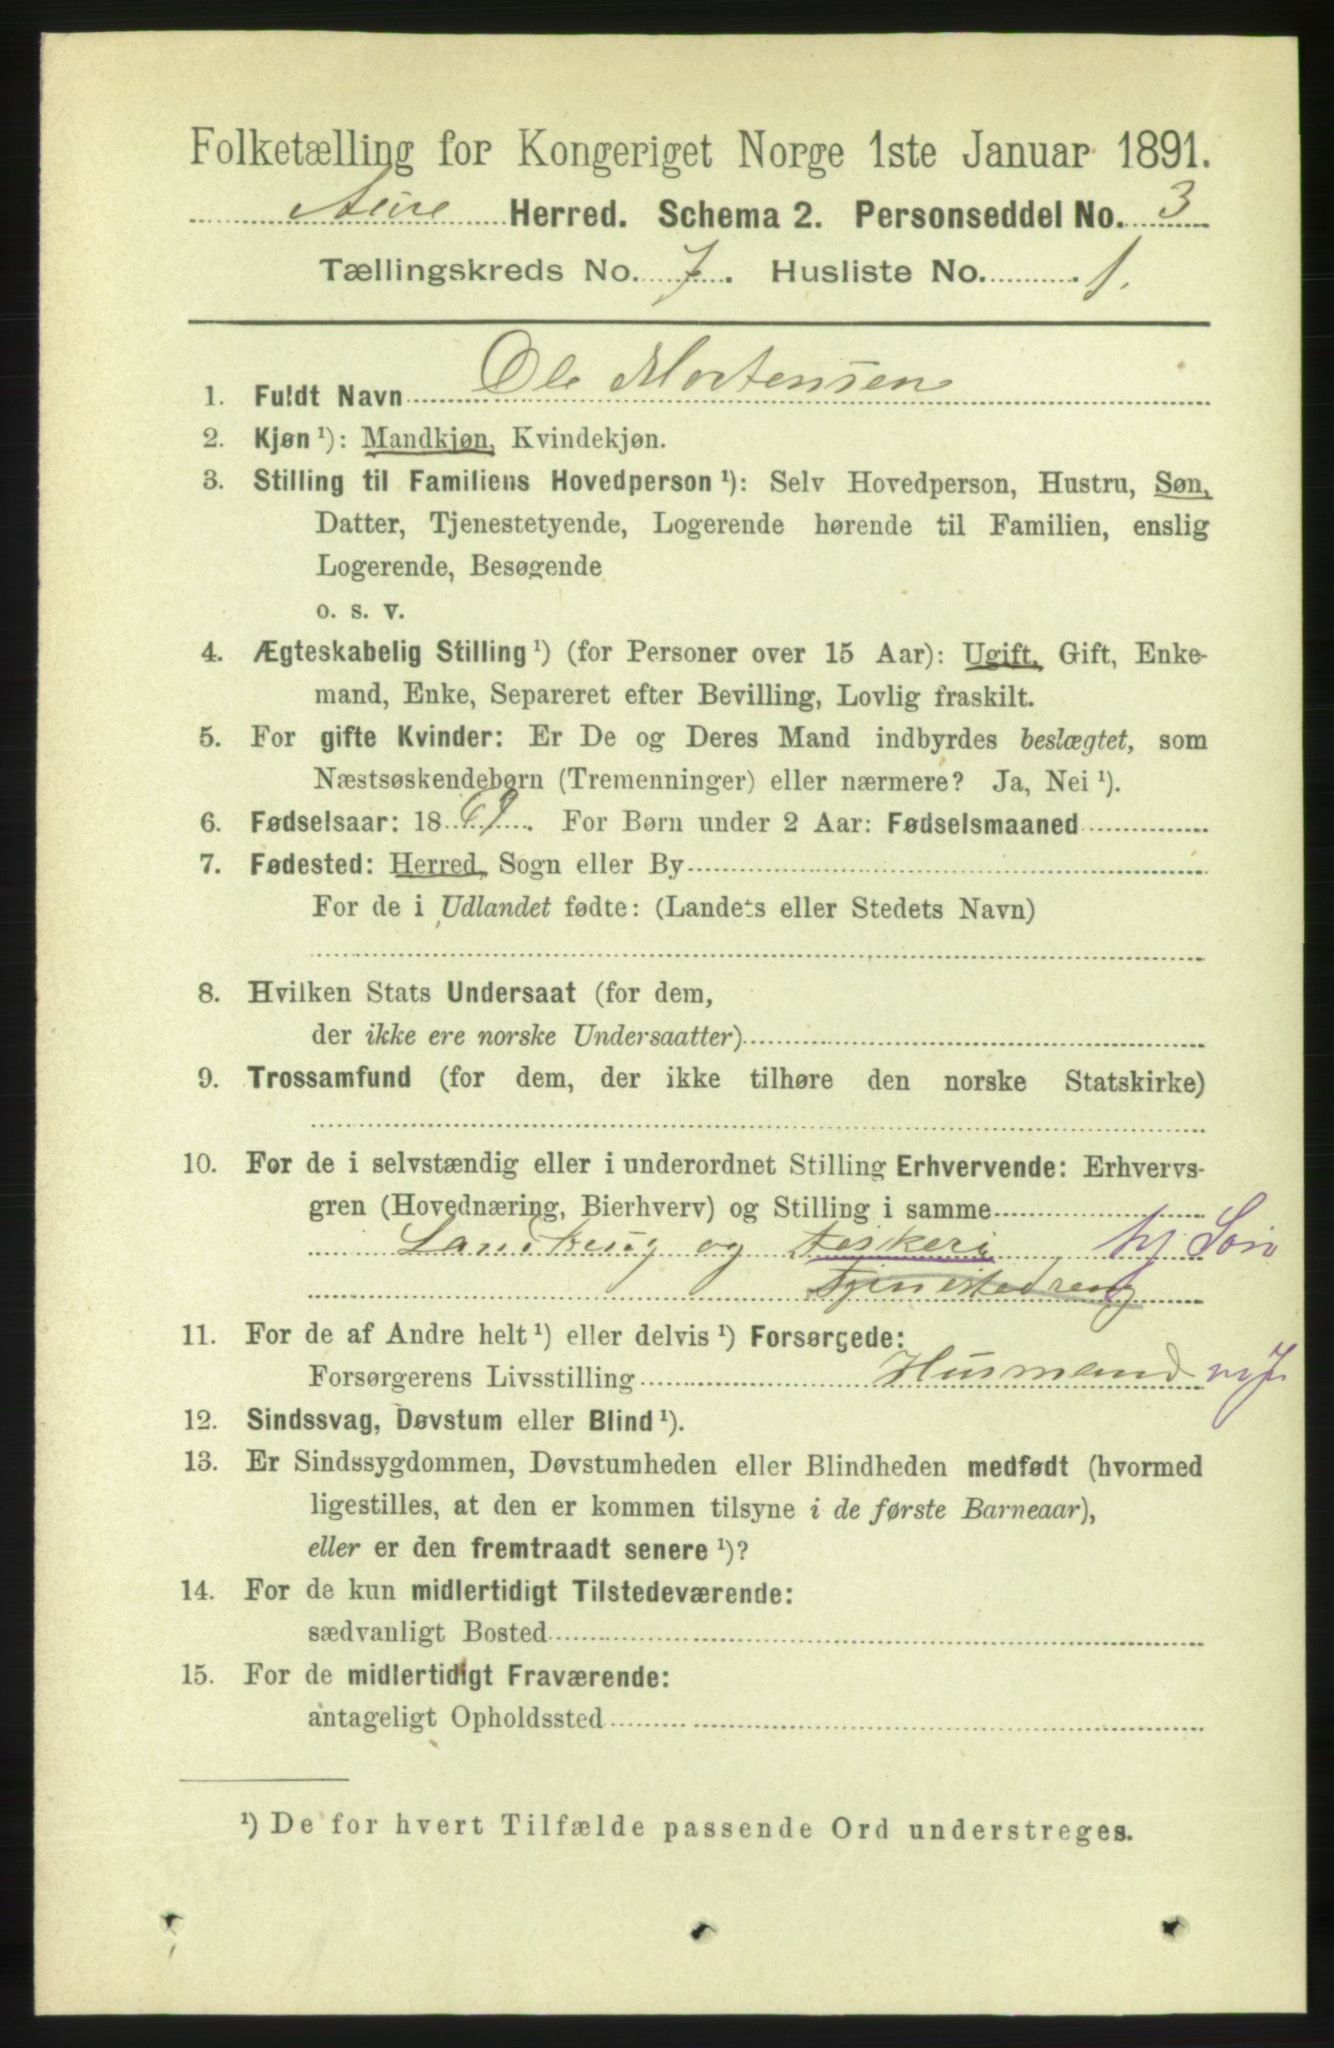 Folketælling for Kongeriget Norge 1ste Januar 1891.
Aure Herred. Schema 2. Personseddel No. 3
Tællingskreds No. 7. Husliste No. 1.
1. Fuldt Navn Ole Mortensen
2. Kjøn ¹): Mandkjøn, Kvindekjøn.
3. Stilling til Familiens Hovedperson ¹): Selv Hovedperson, Hustru, Søn,
Datter, Tjenestetyende, Logerende hørende til Familien, enslig
Logerende, Besøgende
o. s. v.
4. Ægteskabelig Stilling ¹) (for Personer over 15 Aar): Ugift, Gift, Enke-
mand, Enke, Separeret efter Bevilling, Lovlig fraskilt.
5. For gifte Kvinder: Er De og Deres Mand indbyrdes beslægtet, som
Næstsøskendebørn (Tremenninger) eller nærmere? Ja, Nei ¹).
6. Fødselsaar: 1869. For Børn under 2 Aar: Fødselsmaaned
7. Fødested: Herred, Sogn eller By
For de i Udlandet fødte: (Landets eller Stedets Navn)
8. Hvilken Stats Undersaat (for dem,
der ikke ere norske Undersaatter)
9. Trossamfund (for dem, der ikke tilhøre den norske Statskirke)
10. For de i selvstændig eller i underordnet Stilling Erhvervende: Erhvervs-
gren (Hovednæring, Bierhverv) og Stilling i samme
og fiskeri hj Søn
Tjenestedreng
11. For de af Andre helt ¹) eller delvis ¹) Forsørgede:
Forsørgerens Livsstilling Husmand
12. Sindssvag, Døvstum eller Blind ¹).
13. Er Sindssygdommen, Døvstumheden eller Blindheden medfødt (hvormed
ligestilles, at den er kommen tilsyne i de første Barneaar),
eller er den fremtraadt senere ¹)?
14. For de kun midlertidigt Tilstedeværende:
sædvanligt Bosted
15. For de midlertidigt Fraværende:
antageligt Opholdssted
¹) De for hvert Tilfælde passende Ord understreges.